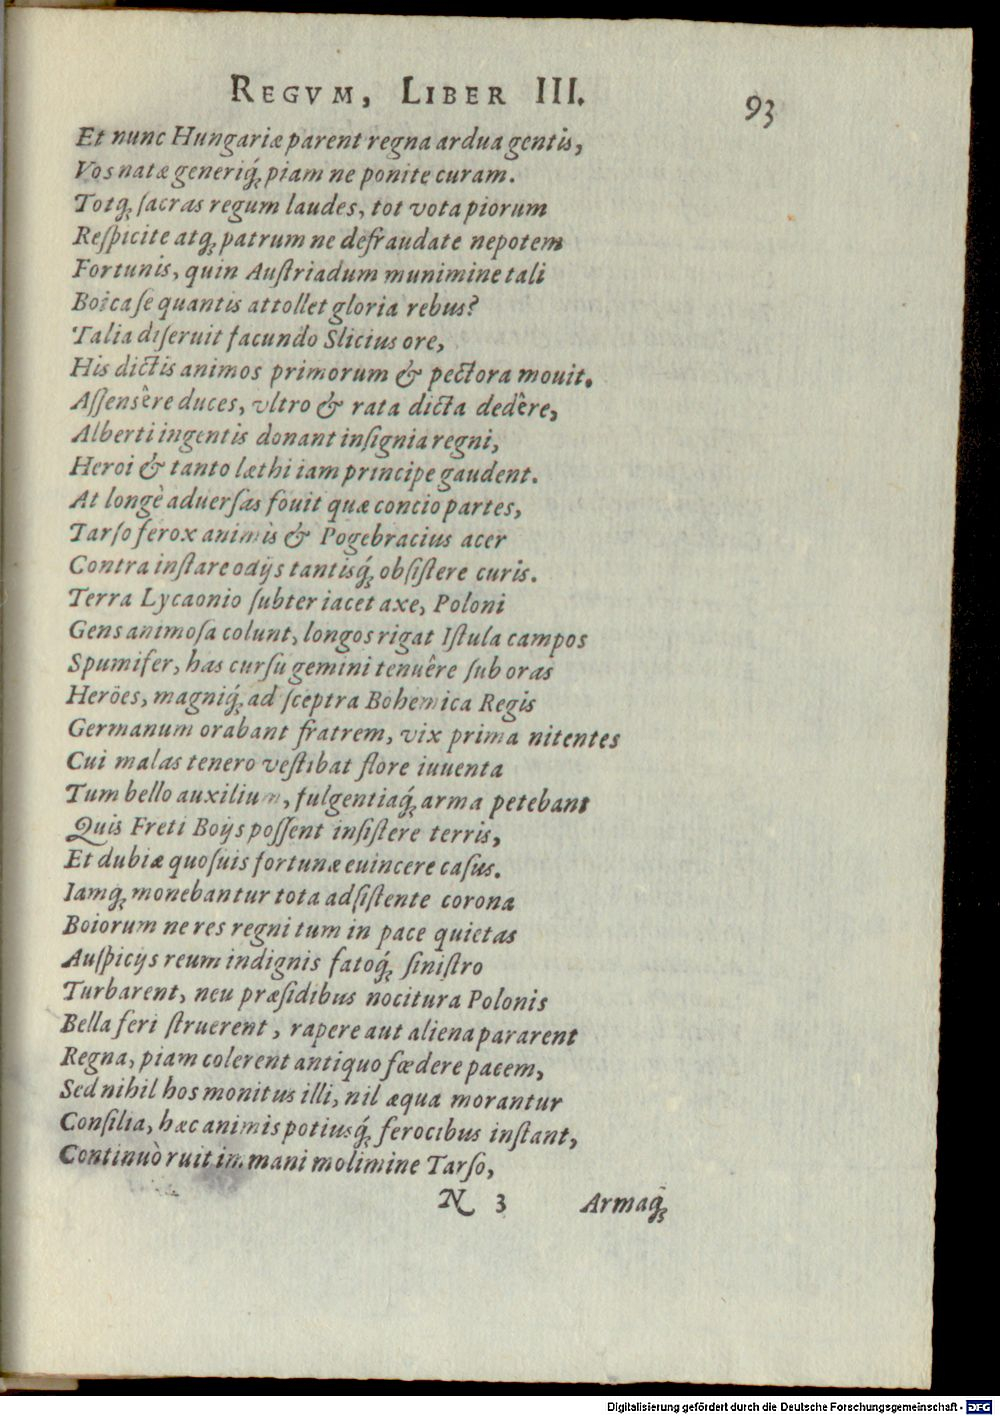 REGVM, LIBER III. 93
Et nunc Hungariæ parent regna ardua gentis,
Vos natæ generiq́ꝫ piam ne ponite curam.
Totqꝫ ſacras regum laudes, tot vota piorum
Reſpicite atqꝫ patrum ne defraudate nepotem
Fortunis, quin Auſtriadum munimine tali
Boicaſe quantis attollet gloria rebus?
Talia diſeruit facundo Slicius ore,
His dictis animos primorum & pectora mouit.
Aſſensêre duces, vltro & rata dicta dedêre,
Alberti ingentis donant inſignia regni,
Heroi & tanto læthi iam principe gaudent.
At longè aduerſas fouit quæ concio partes,
Tarſo ferox animis & Pogebracius acer
Contra inſtare odijs tantisq́ꝫ obſiſtere curis.
Terra Lycaonio ſubter iacet axe, Poloni
Gens animoſa colunt, longos rigat Iſtula campos
Spumifer, has curſu gemini tenuêre ſub oras
Heröes, magniq́ꝫ ad ſceptra Bohemica Regis
Germanum orabant fratrem, vix prima nitentes
Cui malas tenero veſtibat flore iuuenta
Tum bello auxilium, fulgentiaq́ꝫ arma petebant
Quis Freti Boijs poſſent inſiſtere terris,
Et dubiæ quoſuis fortunæ euincere caſus.
Iamqꝫ monebantur tota adſiſtente corona
Boiorum ne res regni tum in pace quietas
Auſpicijs reum indignis fatoq́ꝫ ſiniſtro
Turbarent, neu præſidibus nocitura Polonis
Bella feri ſtruerent, rapere aut aliena pararent
Regna, piam colerent antiquo fœdere pacem,
Sed nihil hos monitus illi, nil æqua morantur
Conſilia, hæc animis potiusq́ꝫ ferocibus inſtant,
Continuò ruit immani molimine Tarſo,
N 3 Armaq́ꝫ
Digitalisierung gefördert durch die Deutsche Forschungsgemeinschaft - DFG